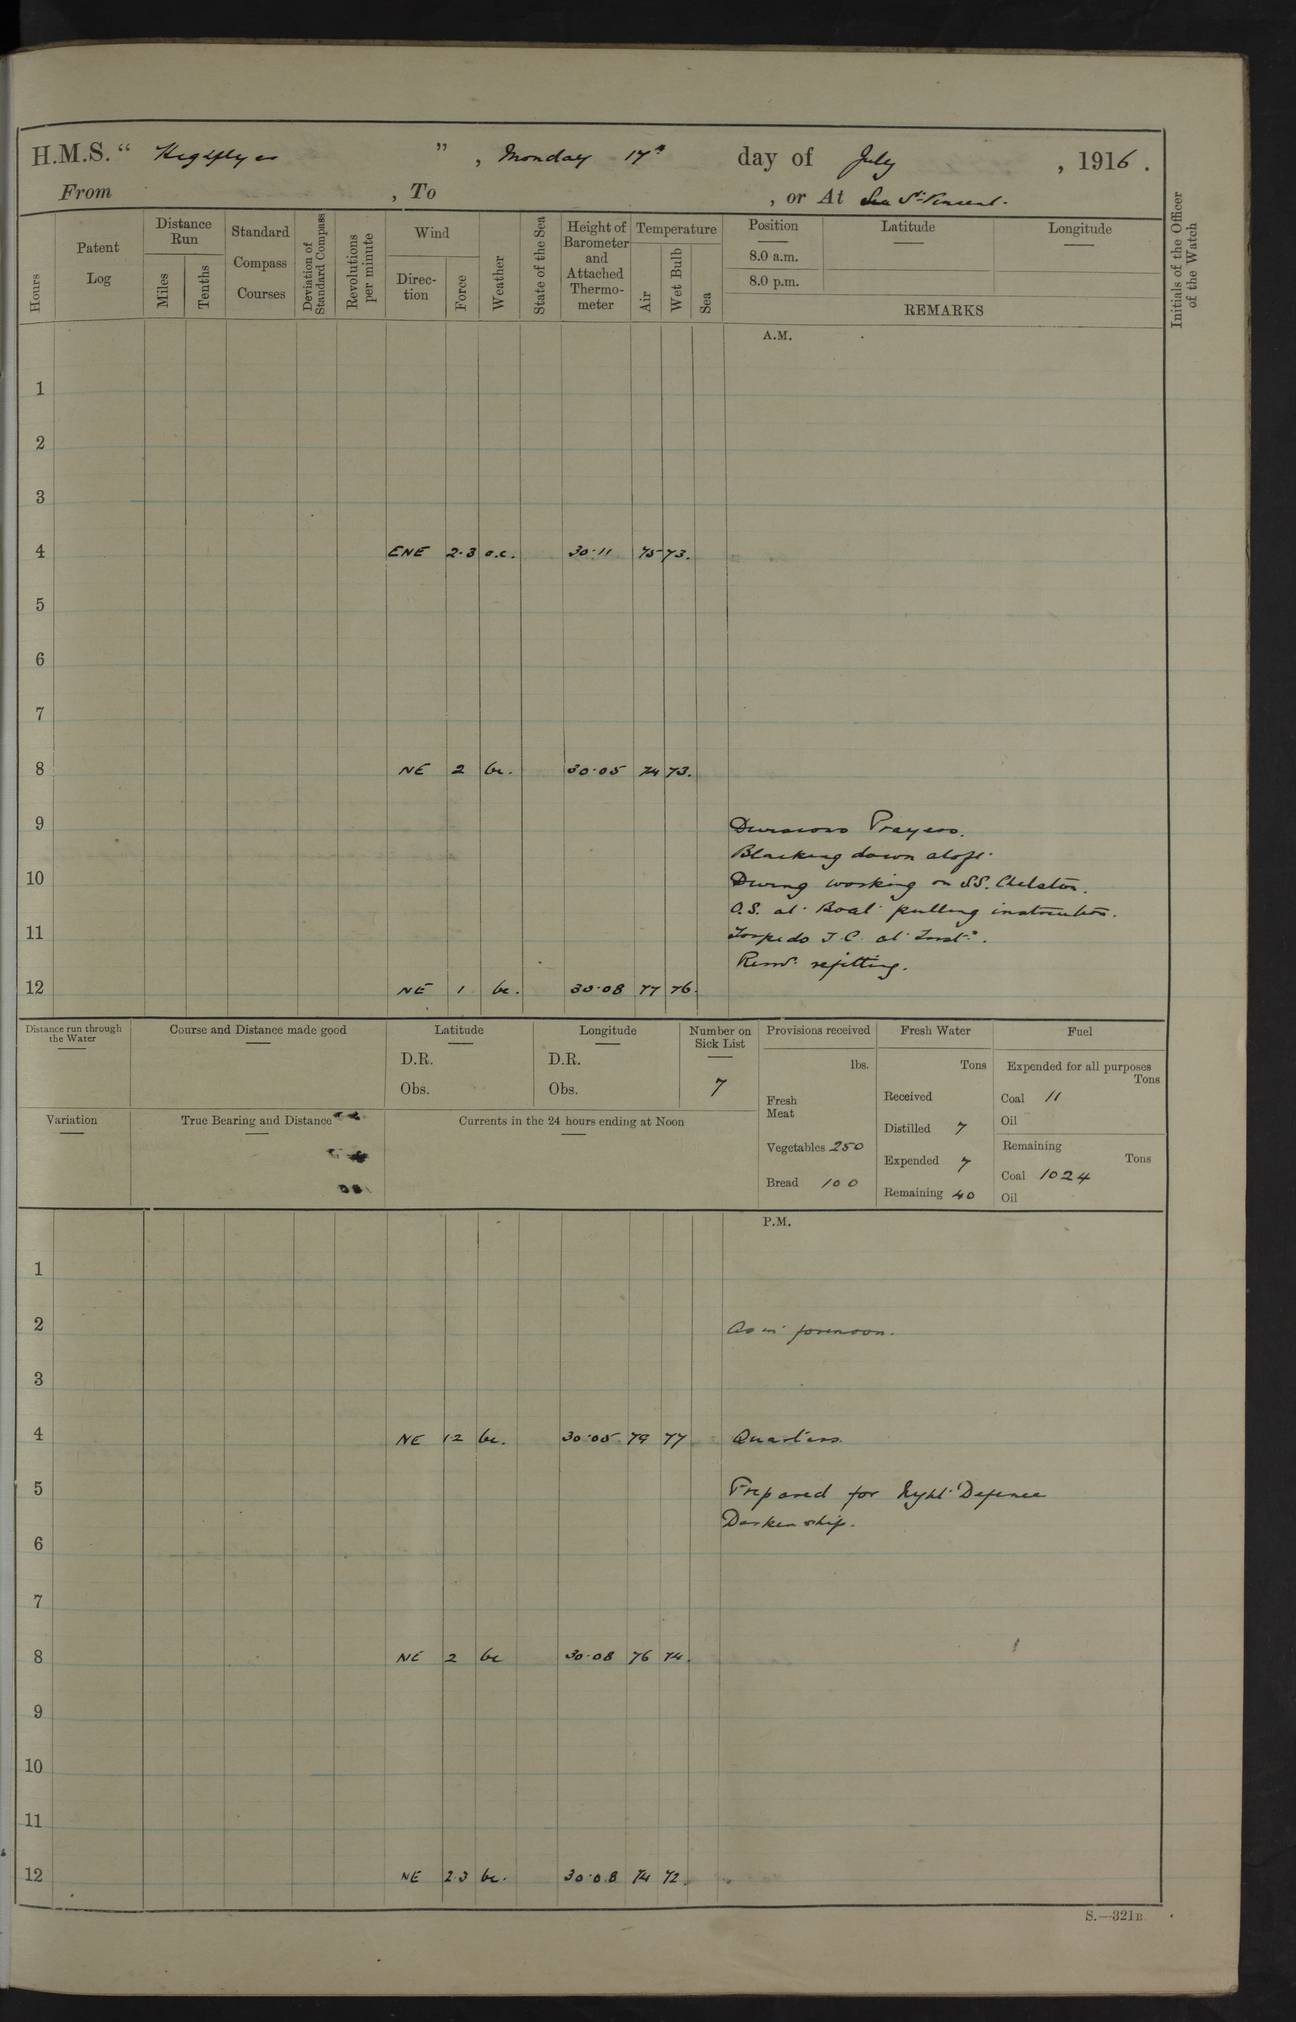 H.M.S. “ Highflyer ” , Monday 17th day of July , 1916 .
From , To , or At St Vincent.
Hours
Patent Log
Distance Run
Miles
Tenths
Standard Compass Courses
Deviation of Standard Compass
Revolutions per minute
Wind
Direction
Force
Weather
State of the Sea
Height of Barometer and Attached Thermometer
Temperature
Air
Wet Bulb
Sea
Position
8.0 a.m.
8.0 p.m.
Latitude
Longitude
REMARKS
Initials of the Officer of the Watch
A.M.
1
2
3
4 ENE 2·3 o.c. 30·11 75 73.
5
6
7
8 NE 2 bc. 30·05 74 73.
9 Divisions Prayers.
Blacking down aloft.
10 Diving working on SS. Chelston.
O.S. at Boat pulling instruction.
11 Torpedo T.C. at Instn.
Remr refitting.
12 NE 1 bc. 30·08 77 76.
Distance run through the Water
Course and Distance made good
Latitude
D.R.
Obs.
Longitude
D.R.
Obs.
Number on Sick List
7
Provisions received
lbs.
Fresh Meat
Vegetables 250
Bread 100
Fresh Water
Tons
Received
Distilled 7
Expended 7
Remaining 40
Fuel
Expended for all purposes
Tons
Coal 11
Oil
Remaining
Tons
Coal 1024
Oil
Variation
True Bearing and Distance
Currents in the 24 hours ending at Noon
P.M.
1
2 As in forenoon.
3
4 NE 1·2 bc. 30·05 79 77 Quarters.
5 Prepared for Night Defence
Darken ship.
6
7
8 NE 2 bc 30·08 76 74.
9
10
11
12 NE 2·3 bc. 30·08 74 72.
S.—321B.